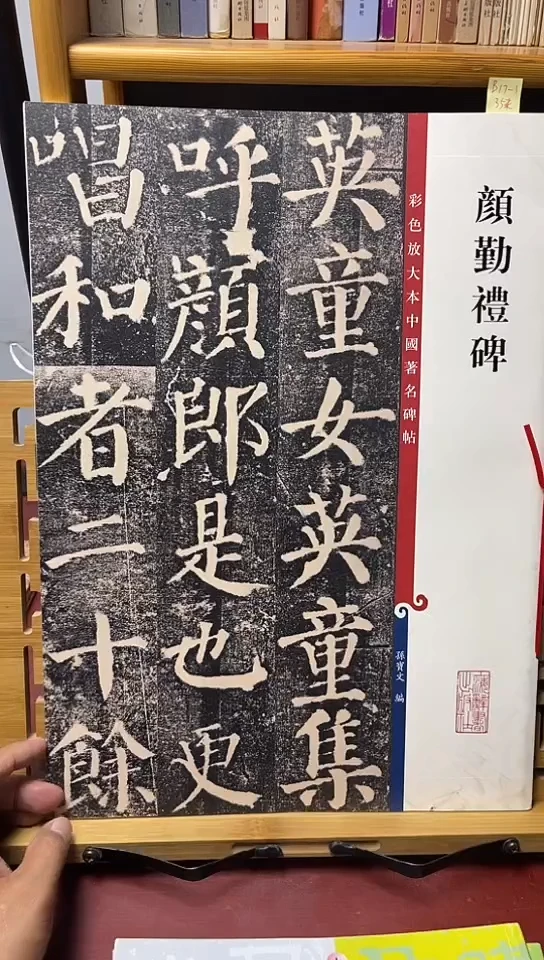 顔勤禮碑
彩色放大本中國著名碑帖
孫寶文 編
英童女英童集
呼顔郎是也更
唱和者二十餘
B17-1